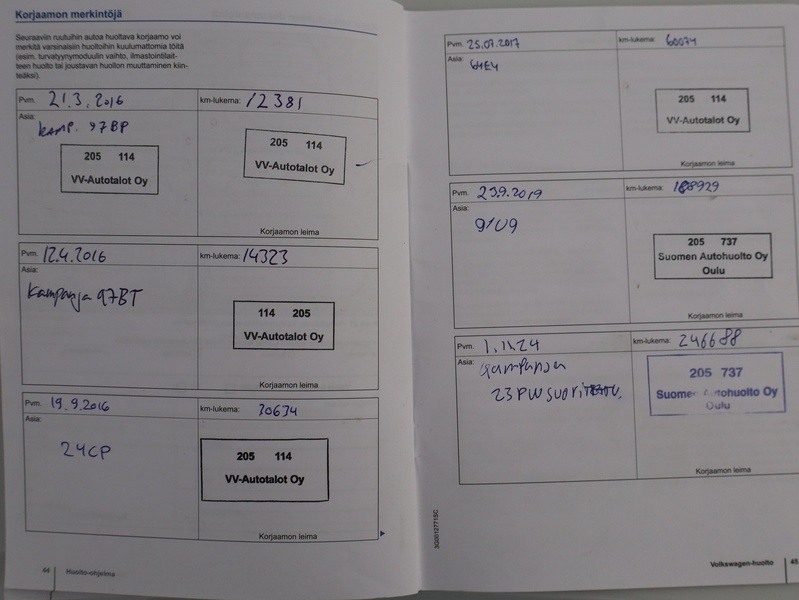 Korjaamon merkintöjä
Seuraaviin ruutuihin autoa huoltava korjaamo voi
merkitä varsinaisiin huoltoihin kuulumattomia töitä
(esim. turvatyynymoduulin vaihto, ilmastointilait-
teen huolto tai joustavan huollon muuttaminen kiin-
teäksi).
Pvm. 21.3.2016 km-lukema: 12381
Asia:
kamp. 97BP
205 114
VV-Autotalot Oy
205 114
VV-Autotalot Oy
Korjaamon leima
Pvm. 12.4.2016 km-lukema: 14323
Asia:
Kampanja 97BT
114 205
VV-Autotalot Oy
Korjaamon leima
Pvm. 19.9.2016 km-lukema: 30634
Asia:
24CP
205 114
VV-Autotalot Oy
Korjaamon leima
44 Huolto-ohjelma
Pvm. 25.07.2017 km-lukema: 60074
Asia:
205 114
VV-Autotalot Oy
Korjaamon leima
Pvm. 23.9.2019 km-lukema: 188929
Asia:
205 737
Suomen Autohuolto Oy
Oulu
Korjaamon leima
Pvm. 1.11.24 km-lukema: 246688
Asia:
Kampanja
23PW SUORITETTU.
205 737
Suomen Autohuolto Oy
Oulu
Korjaamon leima
3Q0012771SC
Volkswagen-huolto 45